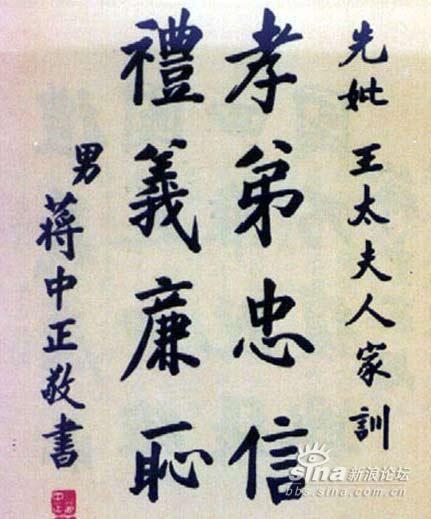 先妣王太夫人家訓
孝弟忠信
禮義廉恥
男蔣中正敬書
sina新浪论坛
bbs.sina.com.cn